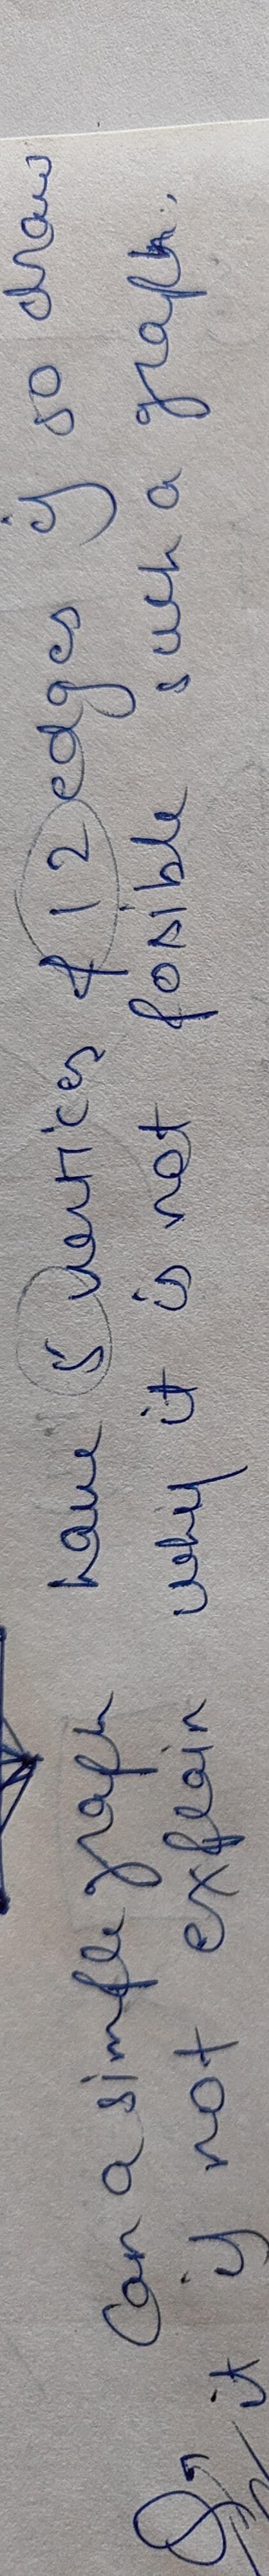 Can a simple graph have 5 vertices & 12 edges if so draw
Q, it if not explain why it is not posible such a graph.